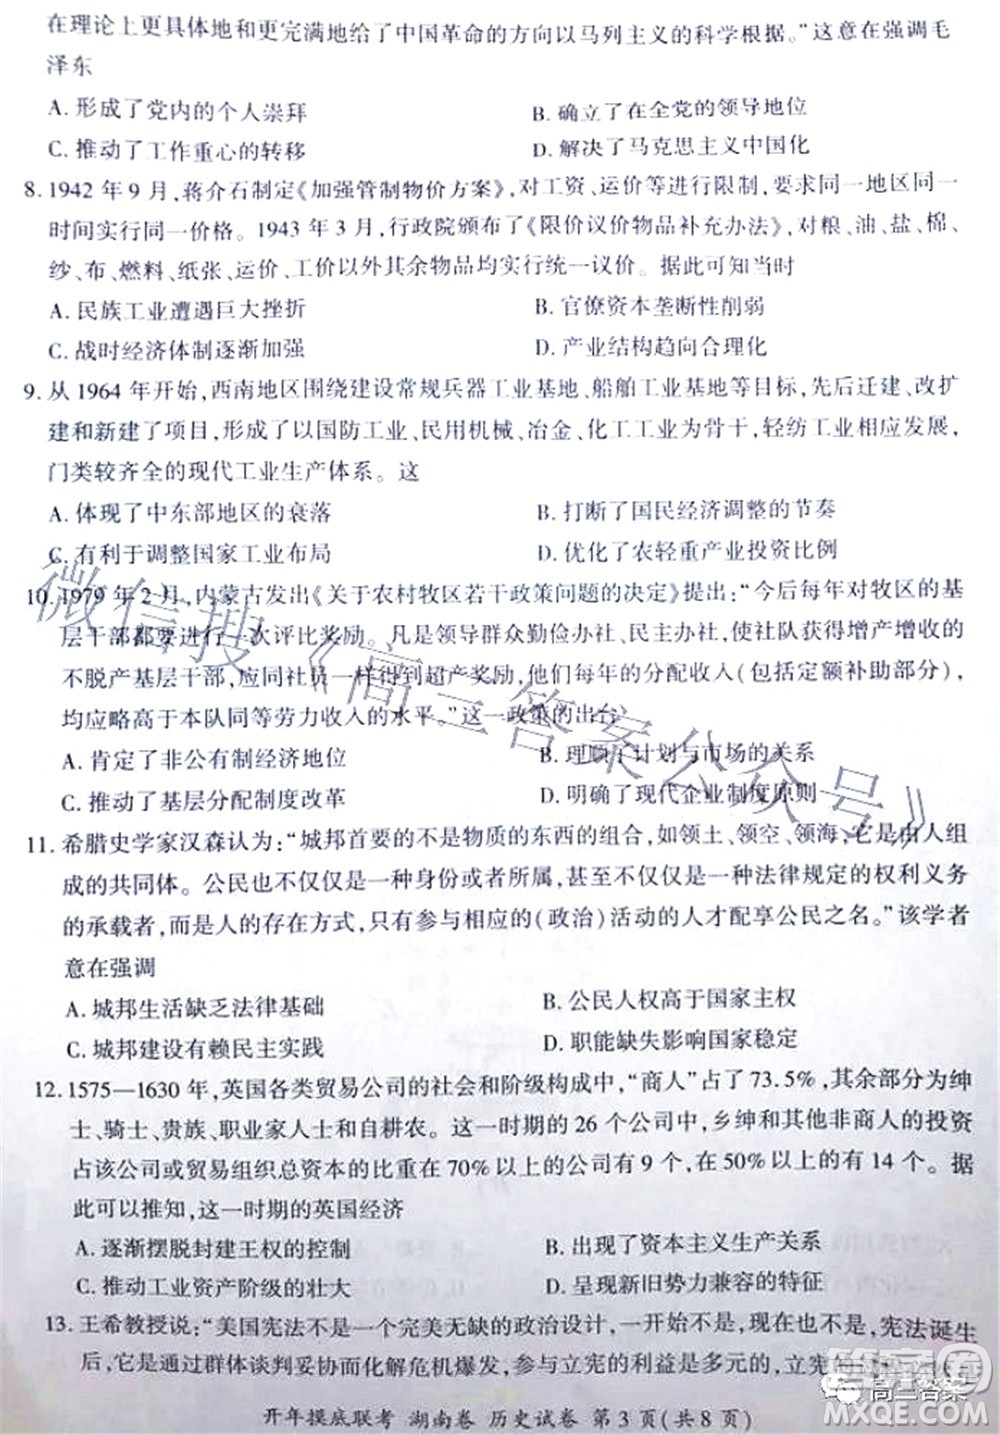 在理论上更具体地和更完满地给了中国革命的方向以马列主义的科学根据。”这意在强调毛
泽东
A. 形成了党内的个人崇拜
B. 确立了在全党的领导地位
C. 推动了工作重心的转移
D. 解决了马克思主义中国化
8. 1942 年 9 月,蒋介石制定《加强管制物价方案》,对工资、运价等进行限制,要求同一地区同一
时间实行同一价格。1943 年 3 月,行政院颁布了《限价议价物品补充办法》,对粮、油、盐、棉、
纱、布、燃料、纸张、运价、工价以外其余物品均实行统一议价。据此可知当时
A. 民族工业遭遇巨大挫折
B. 官僚资本垄断性削弱
C. 战时经济体制逐渐加强
D. 产业结构趋向合理化
9. 从 1964 年开始,西南地区围绕建设常规兵器工业基地、船舶工业基地等目标,先后迁建、改扩
建和新建了项目,形成了以国防工业、民用机械、冶金、化工工业为骨干,轻纺工业相应发展,
门类较齐全的现代工业生产体系。这
A. 体现了中东部地区的衰落
B. 打断了国民经济调整的节奏
C. 有利于调整国家工业布局
D. 优化了农轻重产业投资比例
10. 1979 年 2 月,内蒙古发出《关于农村牧区若干政策问题的决定》提出:“今后每年对牧区的
基层干部都要进行一次评比奖励。凡是领导群众勤俭办社、民主办社,使社队获得增产增收的
不脱产基层干部,应同社员一样得到超产奖励,他们每年的分配收入(包括定额补助部分),
均应略高于本队同等劳力收入的水平。”这一政策的出台
A. 肯定了非公有制经济地位
B. 理顺了计划与市场的关系
C. 推动了基层分配制度改革
D. 明确了现代企业制度原则
11. 希腊史学家汉森认为:“城邦首要的不是物质的东西的组合,如领土、领空、领海,它是由人组
成的共同体。公民也不仅仅是一种身份或者所属,甚至不仅仅是一种法律规定的权利义务
的承载者,而是人的存在方式,只有参与相应的(政治)活动的人才配享公民之名。”该学者
意在强调
A. 城邦生活缺乏法律基础
B. 公民人权高于国家主权
C. 城邦建设有赖民主实践
D. 职能缺失影响国家稳定
12. 1575—1630 年,英国各类贸易公司的社会和阶级构成中,“商人”占了 73.5%,其余部分为绅
士、骑士、贵族、职业家人士和自耕农。这一时期的 26 个公司中,乡绅和其他非商人的投资
占该公司或贸易组织总资本的比重在 70%以上的公司有 9 个,在 50%以上的有 14 个。据
此可以推知,这一时期的英国经济
A. 逐渐摆脱封建王权的控制
B. 出现了资本主义生产关系
C. 推动工业资产阶级的壮大
D. 呈现新旧势力兼容的特征
13. 王希教授说:“美国宪法不是一个完美无缺的政治设计,一开始不是,现在也不是,宪法诞生
后,它是通过群体谈判妥协而化解危机爆发;参与立宪的利益是多元的,立宪
开年摸底联考 湖南卷 历史试卷 第 3 页(共 8 页)
微信搜《高三答案公众号》
高三答案